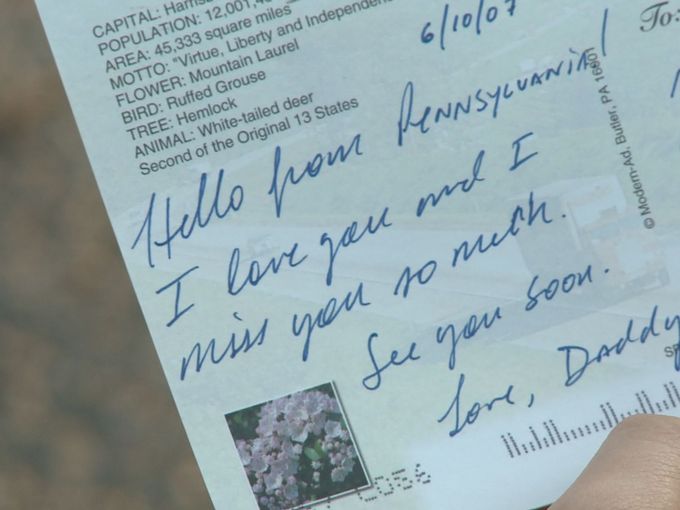 CAPITAL:
POPULATION: 12,001,4
AREA: 45,333 square miles
MOTTO: "Virtue, Liberty and Independenc
FLOWER: Mountain Laurel
BIRD: Ruffed Grouse
TREE: Hemlock
ANIMAL: White-tailed deer
Second of the Original 13 States
6/10/07
To:
Hello from PENNSYLVANIA!
I love you and I
miss you so much.
See you soon.
Love, DADDY
© Modern-Ad, Butler, PA 16001